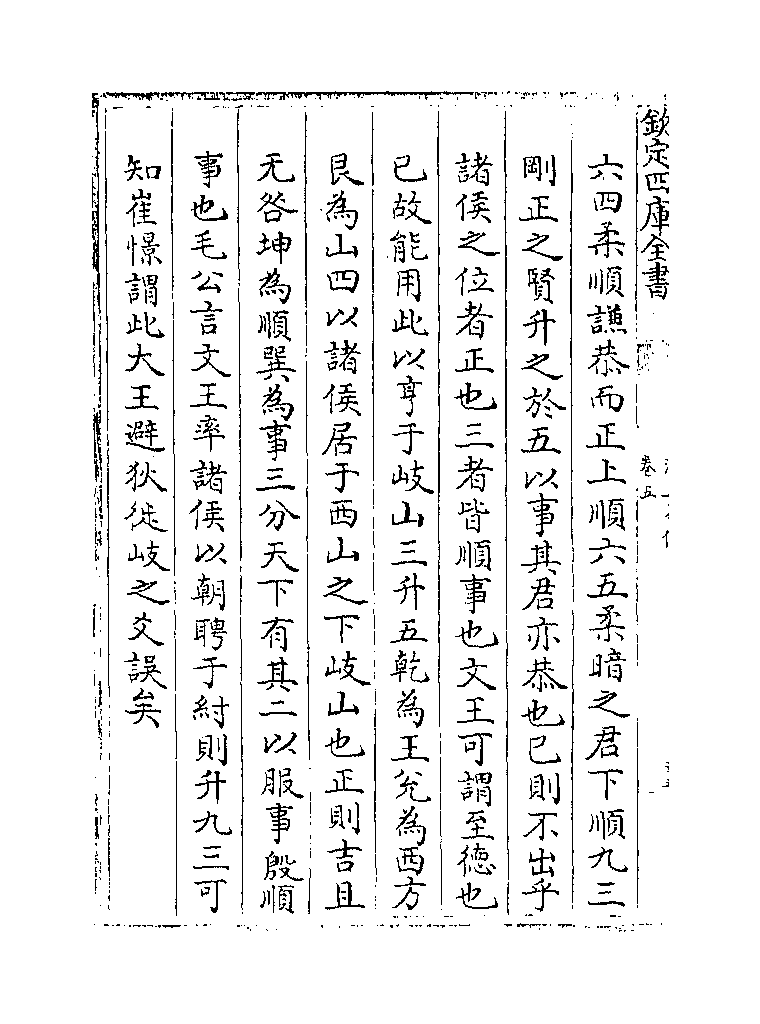 欽定四庫全書
卷五
六四柔順謙恭而正上順六五柔暗之君下順九三
剛正之賢升之於五以事其君亦恭也已則不出乎
諸侯之位者正也三者皆順事也文王可謂至德也
已故能用此以亨于岐山三升五乾為王兊為西方
艮為山四以諸侯居于西山之下岐山也正則吉且
无咎坤為順巽為事三分天下有其二以服事殷順
事也毛公言文王率諸侯以朝聘于紂則升九三可
知崔憬謂此大王避狄徙岐之爻誤矣